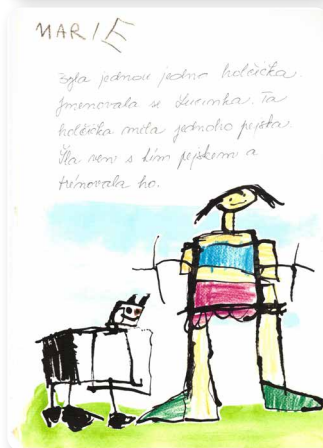 MARIE
Byla jednou jedna holčička.
Jmenovala se Lucinka. Ta
holčička měla jednoho pejska.
Šla ven s tím pejskem a
trénovala ho.